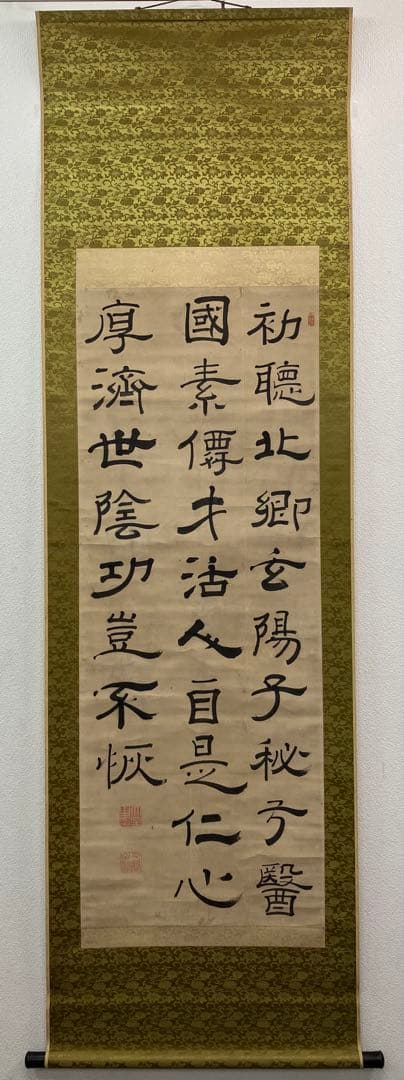 初聽北鄉玄陽子秘方醫
國素僊才活人自是仁心
厚濟世陰功豈不恢